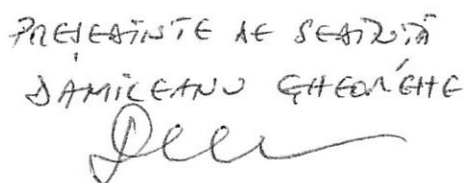 PREȘEDINTE DE ȘEDINȚĂ
DAMICEANU GHEORGHE